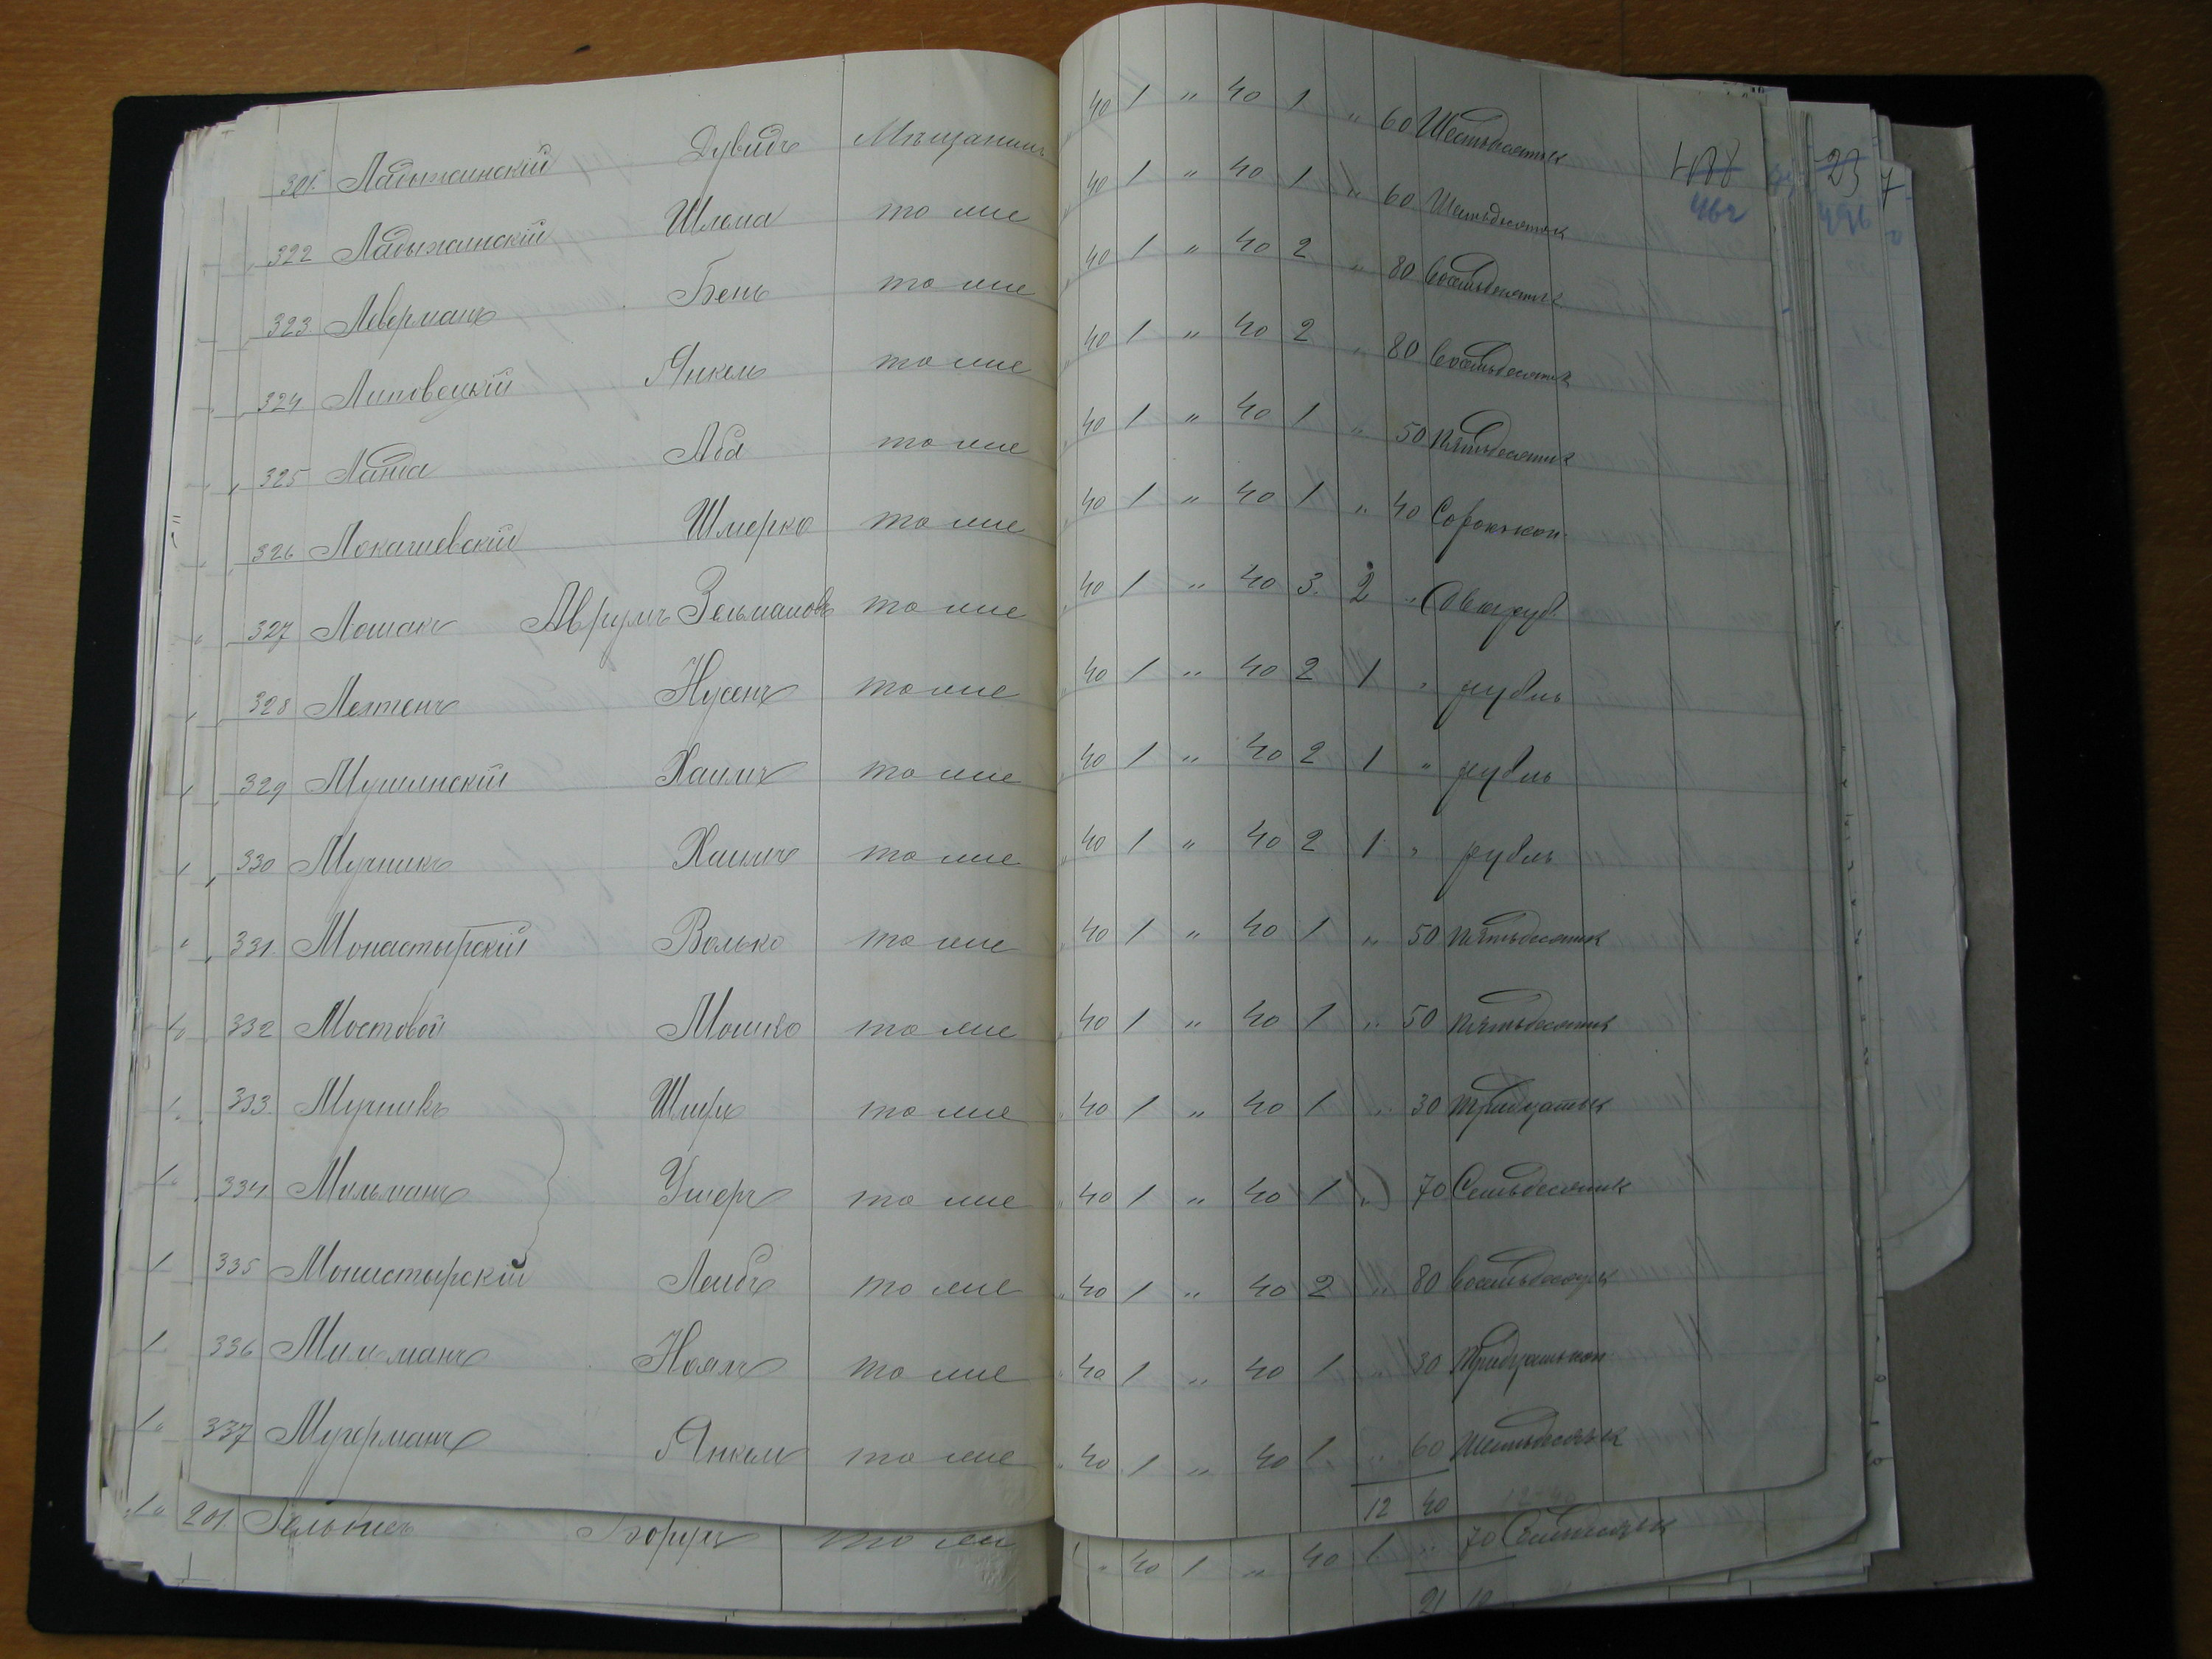 321. Ладыжинскій Дувидъ Мѣщанинъ 40 1 " 40 1 " 60 Шестьдесятък
462
23 7
322 Ладыжинскій Шлема то же 40 1 " 40 1 " 60 Шестьдесятък
323. Леверманъ Бень то же 40 1 " 40 2 " 80 Восемьдесятък
324 Липовецкій Янкель то же 40 1 " 40 2 " 80 Восемьдесятък
325 Лапта Аба то же 40 1 " 40 1 " 50 Пятьдесятък
326 Локачевскій Шмерко то же 40 1 " 40 1 " 40 Сорокъ коп
327 Лошакъ Аврумъ Зельмановъ то же 40 1 " 40 3. 2 " Два руб.
328 Нусенъ то же 40 1 " 40 2 1 " рубль
329 Хаимъ то же 40 1 " 40 2 1 " рубль
330 Мучникъ Хаимъ то же 40 1 " 40 2 1 " рубль
331. Монастырскій Волько то же 40 1 " 40 1 " 50 Пятьдесятък
332 Мостовой Мошко то же 40 1 " 40 1 " 50 Пятьдесятък
333. Мучникъ то же 40 1 " 40 1 " 30 Тридцатьк
334 Мильманъ Ушеръ то же 40 1 " 40 1 " 70 Семьдесятък
335 Монастырскій Лейбъ то же 40 1 " 40 2 " 80 Восемьдесятък
336 Мильманъ то же 40 1 " 40 1 30 Тридцать коп
337 Мучерманъ Янкель то же 40 1 " 40 1 60 Шестьдесятък
12 40
201. то же " 40 1 " 40 1 " 70 Семьдесятък
21